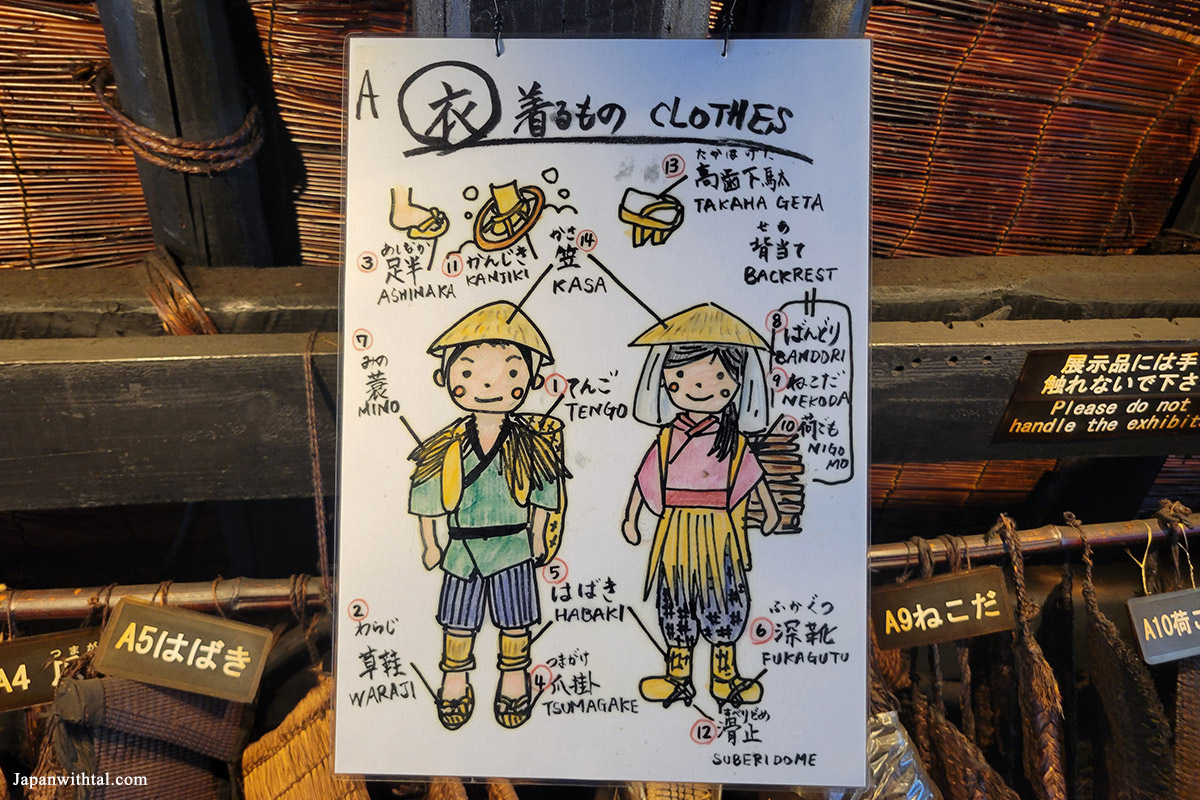 A 衣 着るもの CLOTHES
たかはげた
⑬ 高歯下駄
TAKAHA GETA
せあ
背当て
BACKREST
あしなか
③ 足半
ASHINAKA
⑪ かんじき
KANJIKI
かさ ⑭
笠
KASA
⑦
みの
蓑
MINO
① てんご
TENGO
⑧ ばんどり
BANDORI
⑨ ねこだ
NEKODA
⑩ 荷ども
NIGO
MO
⑤
はばき
HABAKI
②
わらじ
草鞋
WARAJI
つまがけ
④ 爪掛
TSUMAGAKE
ふかぐつ
⑥ 深靴
FUKAGUTU
すべりどめ
⑫ 滑止
SUBERIDOME
展示品には手
触れないで下さ
Please do not
handle the exhibit
つまが
A4
A5はばき
A9ねこだ
A10荷
Japanwithtal.com